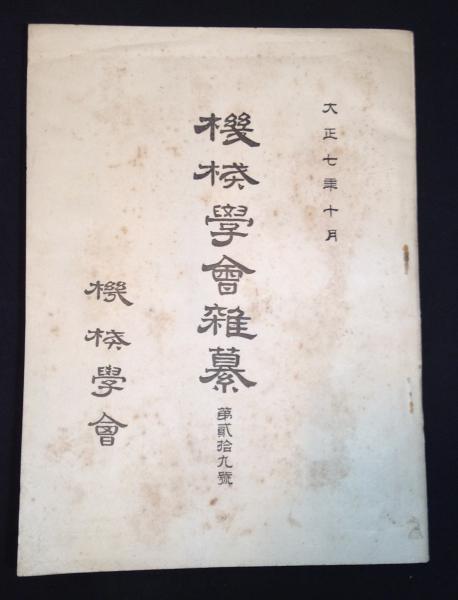 大正七年十月
機械學會雜纂
第貳拾九號
機械學會